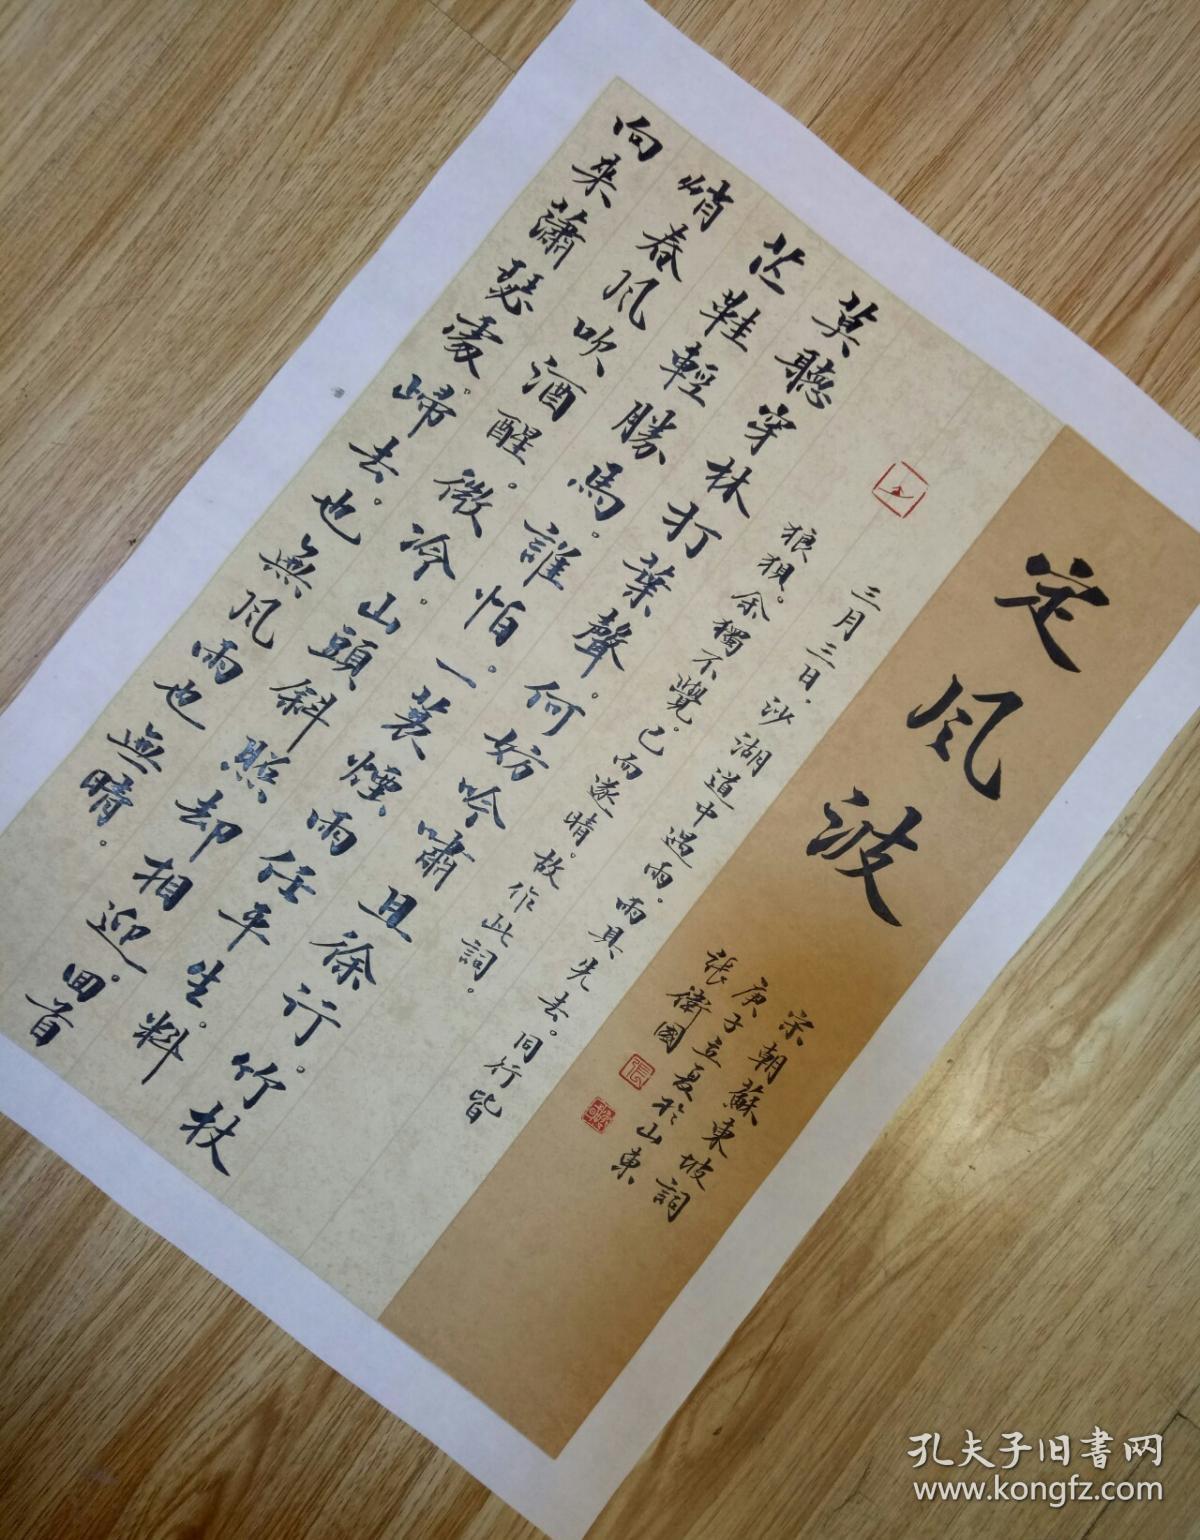 定風波
宋朝蘇東坡詞
庚子立夏於山東
張衛國
三月三日。沙湖道中遇雨。雨具先去。同行皆
狼狽。余獨不覺。已而遂晴。故作此詞。
莫聽穿林打葉聲。何妨吟嘯且徐行。竹杖
芒鞋輕勝馬。誰怕。一蓑煙雨任平生。料
峭春風吹酒醒。微冷。山頭斜照却相迎。回首
向来蕭瑟處。歸去。也無風雨也無晴。
孔夫子旧書网
www.kongfz.com